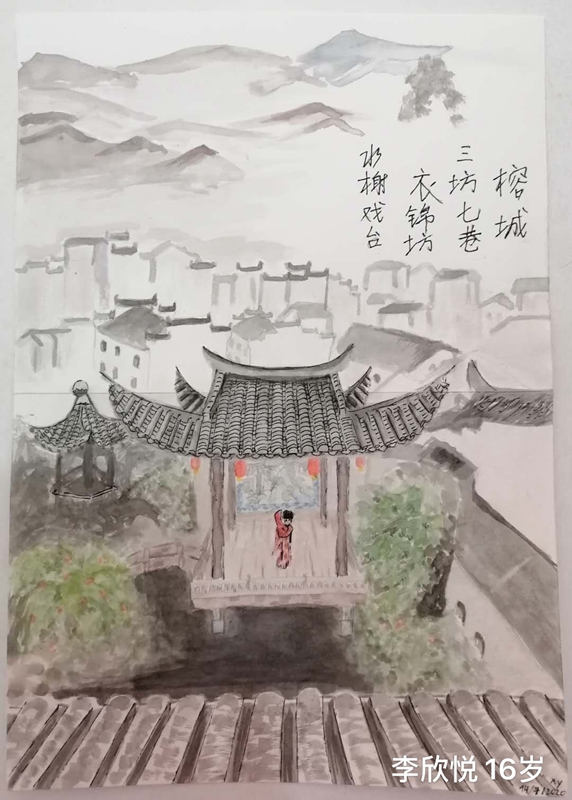 榕城
三坊七巷
衣锦坊
水榭戏台
李欣悦 16岁
My
19/7/2020